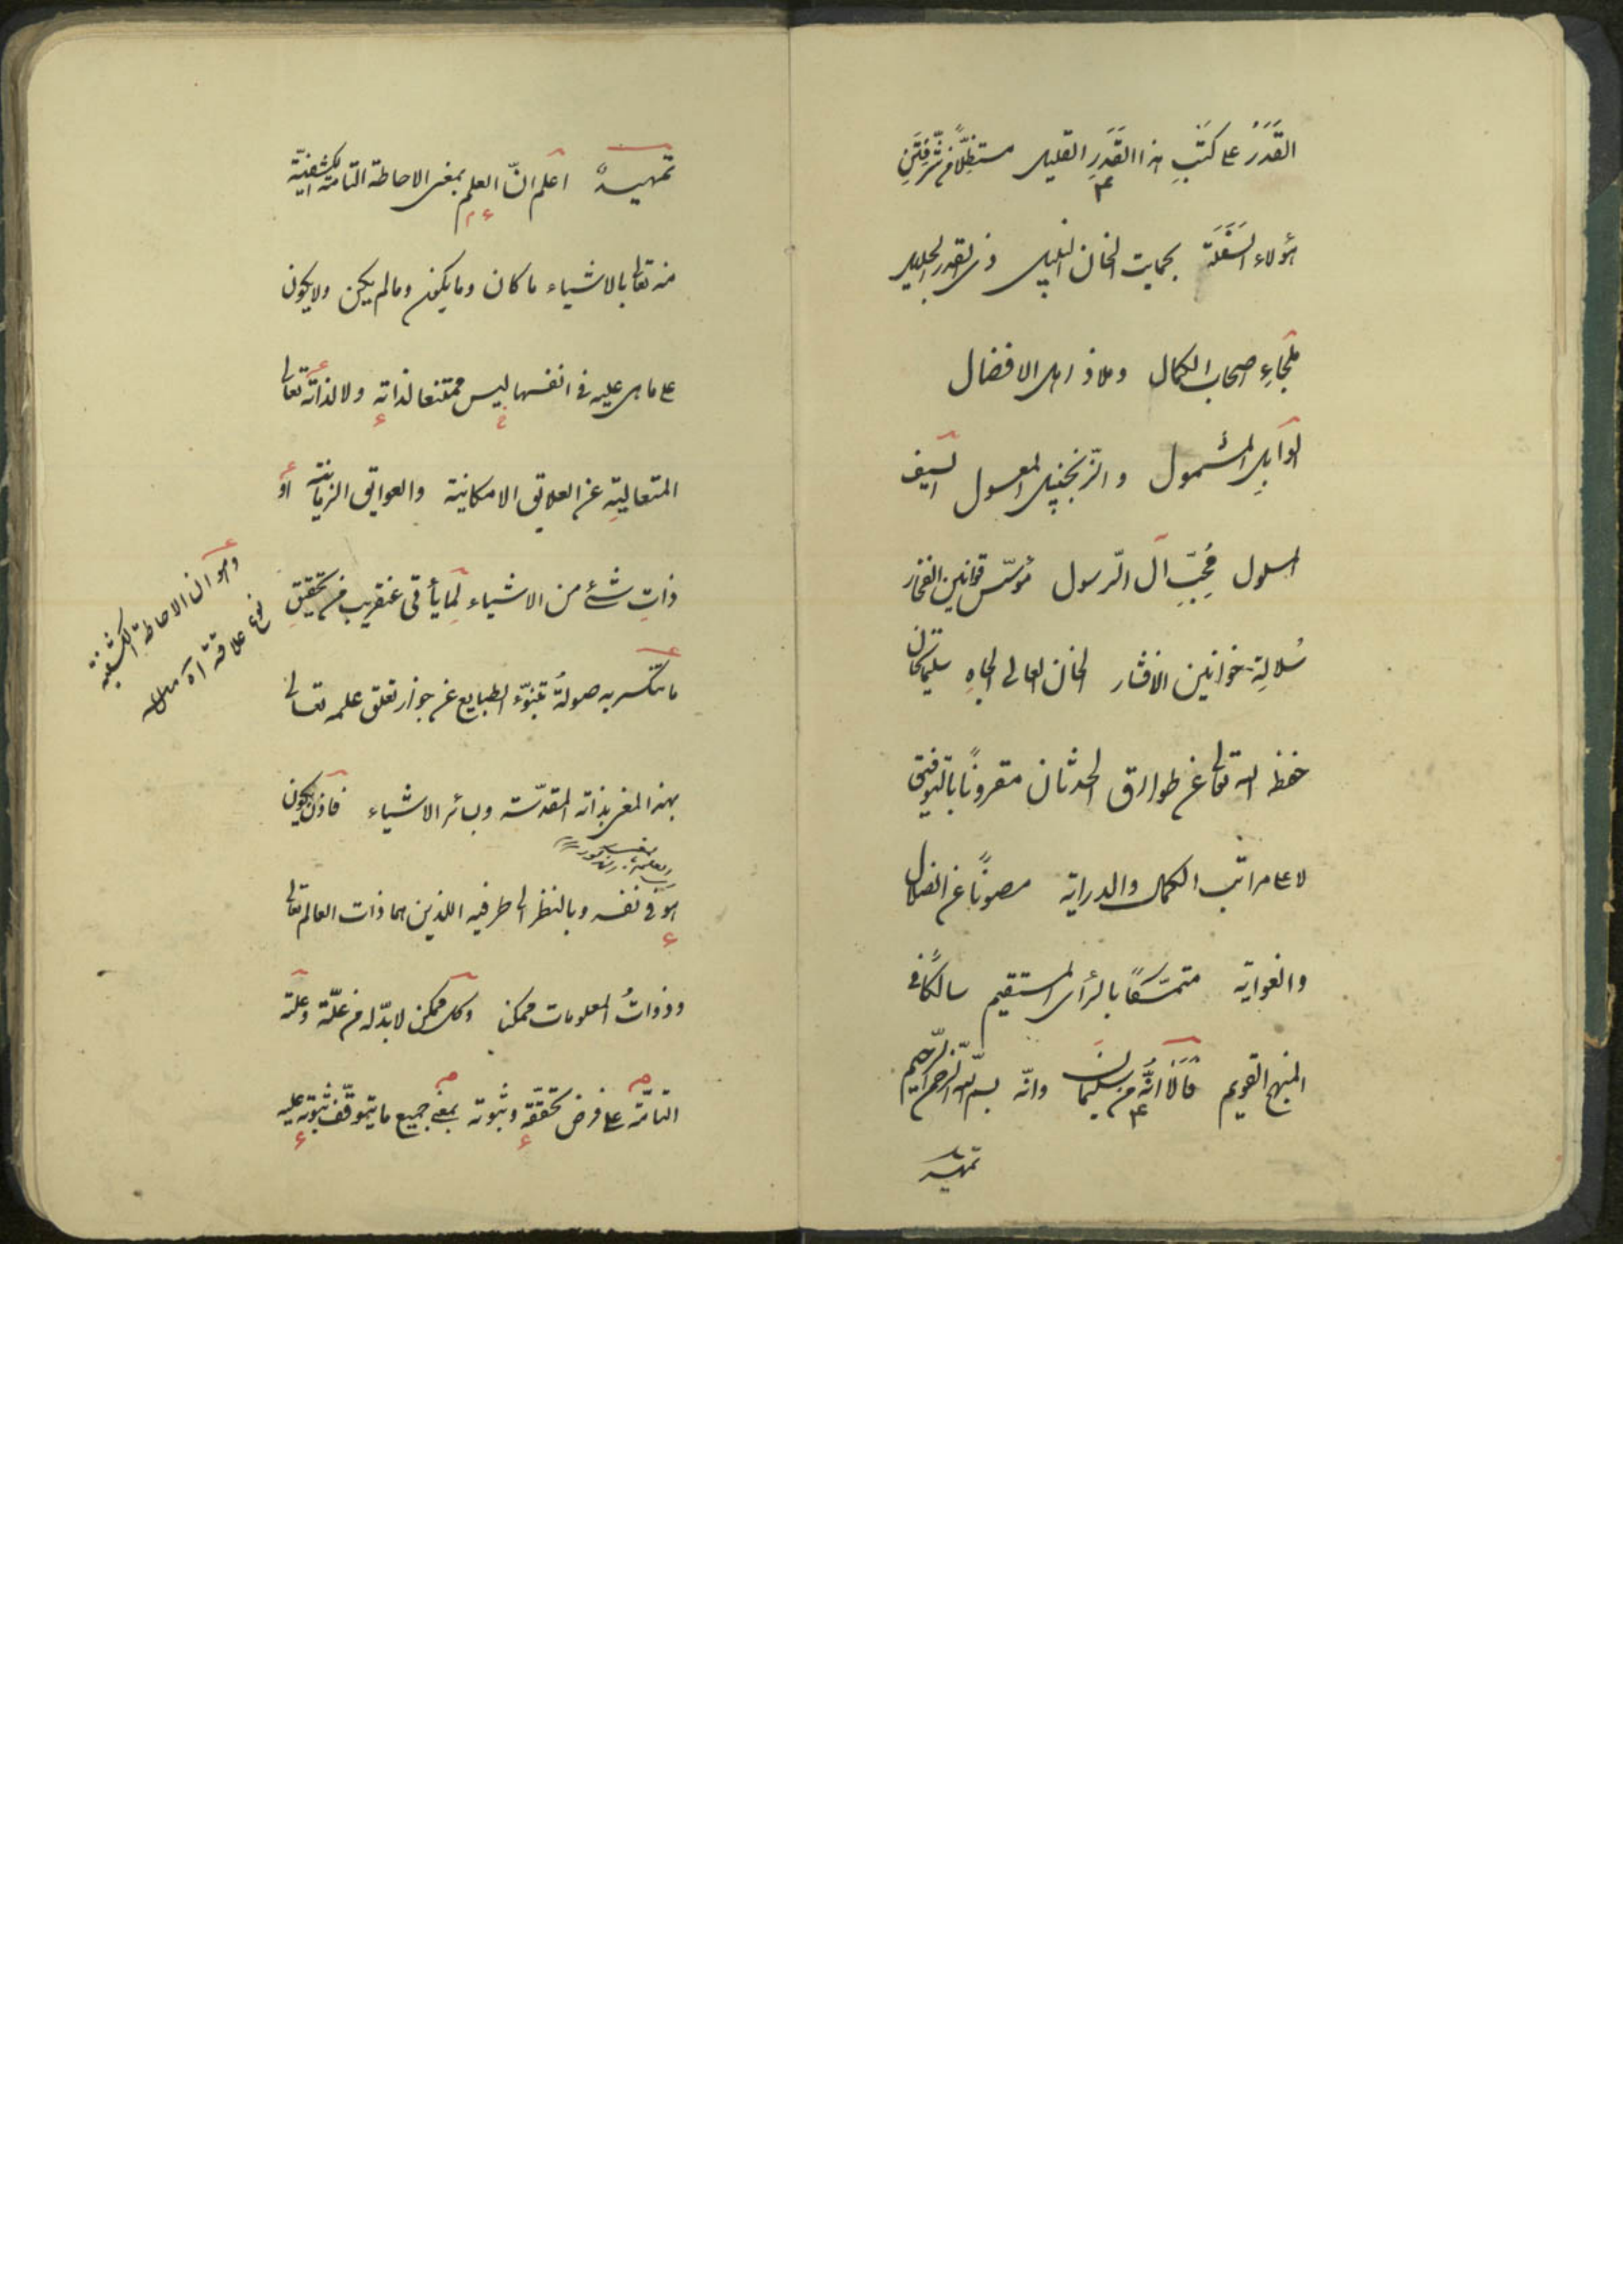 القَدَرُ على كَتْبِ هذا القَدَرِ القليل مستظِلًّا من شرّ فِتَنِ
هؤلاء السَّفَلَة بحمايت الخان النبيل ذى القدر الجليل
ملجاءِ اصحاب الكمال وملاذ اهل الافضال
الوابلِ المشمول والزنجبيل المعسول السيف
المسلول مُحِبِّ آل الرّسول مؤسّس قوانين الفخار
سُلالةِ خوانين الافشار الخان العالى الجاهِ سليمانخان
حفظه الله تعالى عن طوارق الحدثان مقرونًا بالتوفيق
لاعلا مراتب الكمال والدراية مصونًا عن الضلال
والغواية متمسّكًا بالرأى المستقيم سالكًا فى
المنهج القويم قَالَا انَّهُ من سليمانَ وانّه بسم الله الرّحمن الرّحيم
تمهيد
تمهيدٌ اعلم انّ العلم بمعنى الاحاطة التامة الكشفيّة
منه تعالى بالاشياء ما كان وما يكون وما لم يكن ولا يكون
على ما هى عليه فى انفسها ليس ممتنعا لذاته ولا لذاته تعالى
المتعاليةِ عن العلايق الامكانية والعوايق الزمانية او
ذاتِ شئ من الاشياء لِما يأتى عنقريب من تحقيقِ
ما تنكسر به صولةُ تنبّوء الطبايع عن جواز تعلق علمه تعالى
بهذا المعنى بذاته المقدّسة وبسائر الاشياء فاذن يكون
هو فى نفسه وبالنظر الى طرفيه اللذين هما ذات العالم تعالى
وذواتُ المعلومات ممكنا وكل ممكن لا بدّ له من علّة وعلّته
التامّة على فرض تحققه وثبوته بمعنى جميع ما يتوقّف ثبوته عليه
وهو ان الاحاطة الكشفية
نوع علاقة اه منه